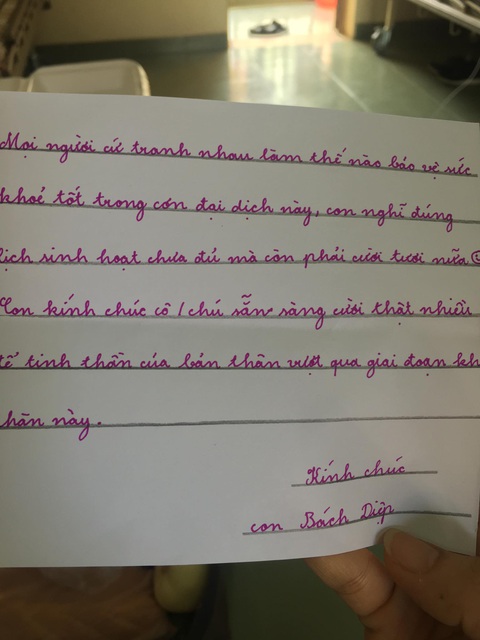 Mọi người cứ tranh nhau làm thế nào bảo vệ sức
khoẻ tốt trong cơn đại dịch này, con nghĩ đúng
lịch sinh hoạt chưa đủ mà còn phải cười tươi nữa
Con kính chúc cô / chú sẵn sàng cười thật nhiều
để tinh thần của bản thân vượt qua giai đoạn kh
hăn này.
Kính chúc
con Bách Diệp